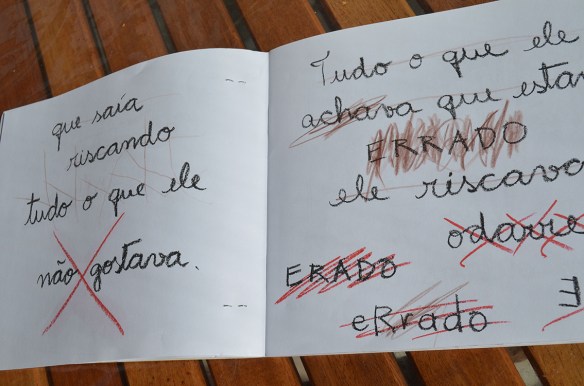 que saía
riscando
tudo o que ele
não gostava.
Tudo o que ele
achava que esta
ERRADO
ele riscava
odarre
ERADO
eRrado
E